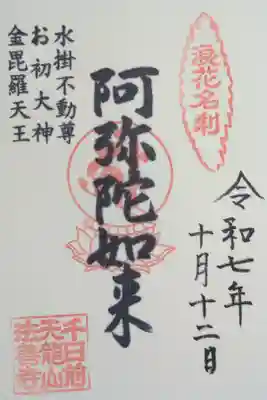 浪花名刹
令和七年
十月十二日
阿弥陀如来
水掛不動尊
お初大神
金毘羅天王
千日前
天龍山
法善寺